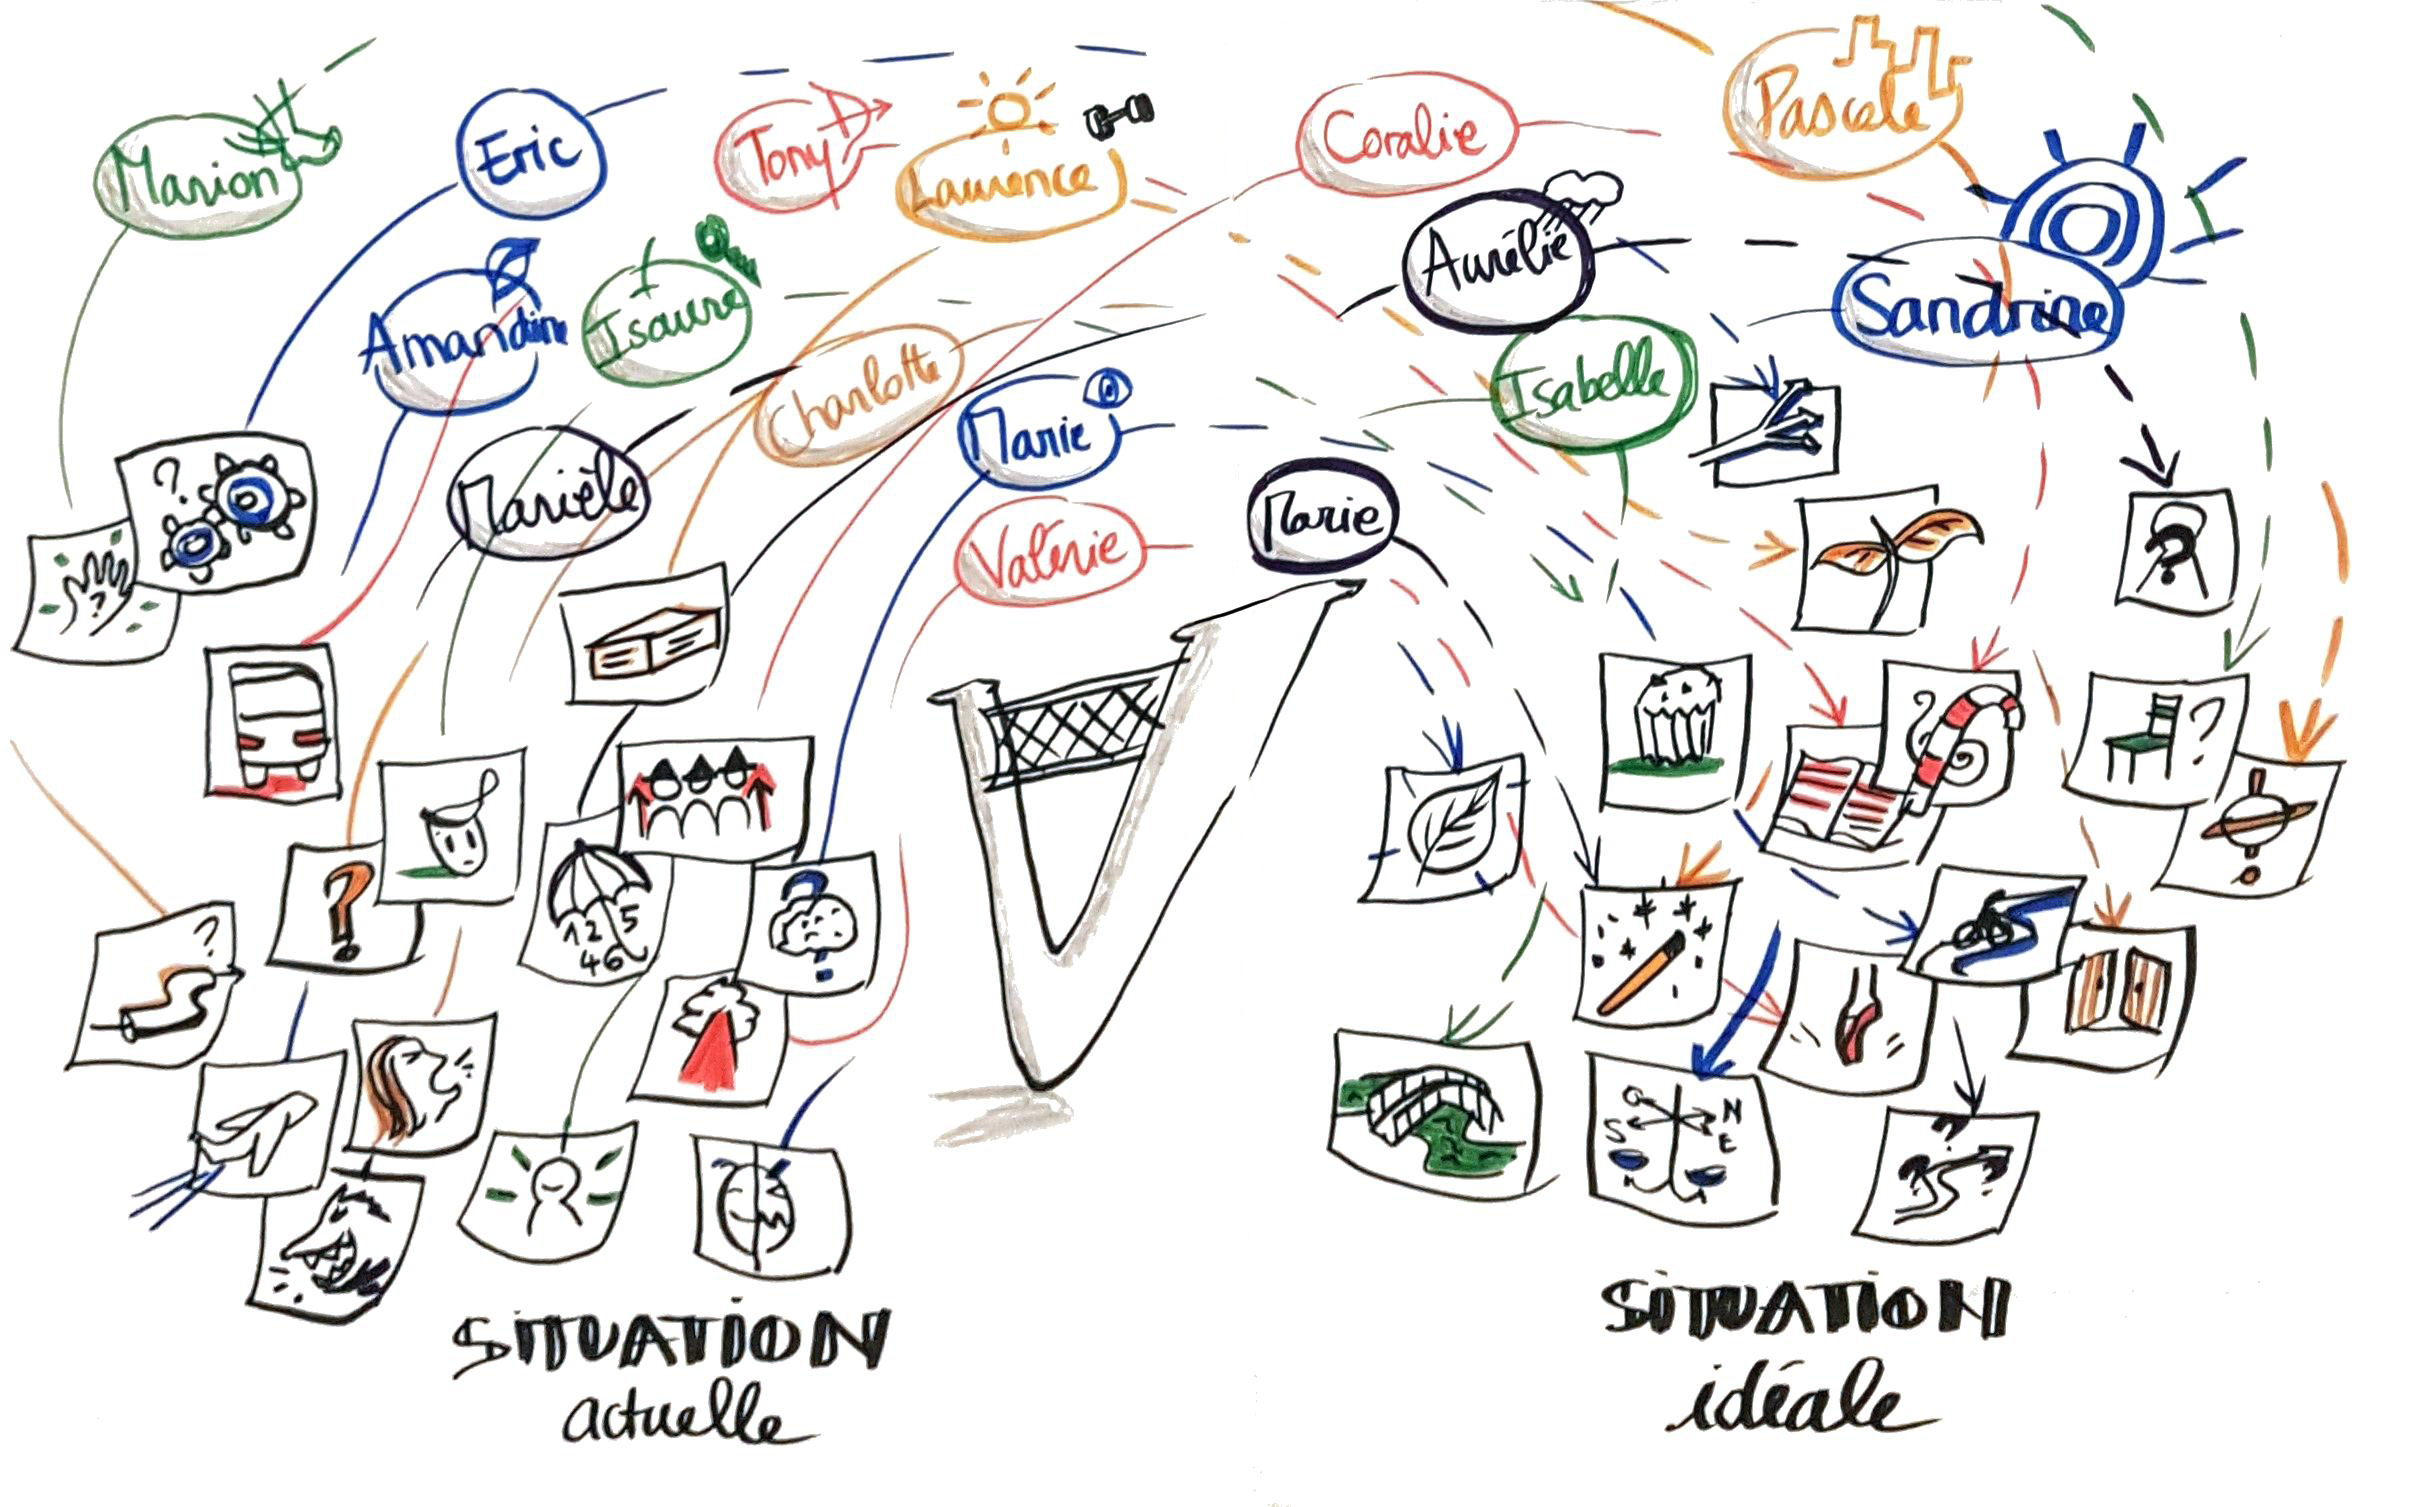 Marion
Eric
Tony
Laurence
Coralie
Pascale
Amandine
Isaure
Charlotte
Aurélie
Sandrine
Isabelle
Marièle
Marie
Valérie
Marie
?
?
?
?
?
1 2 5
4 6
?
?
?
O N
S E
? ?
SiTUATiON
actuelle
SiTUATiON
idéale